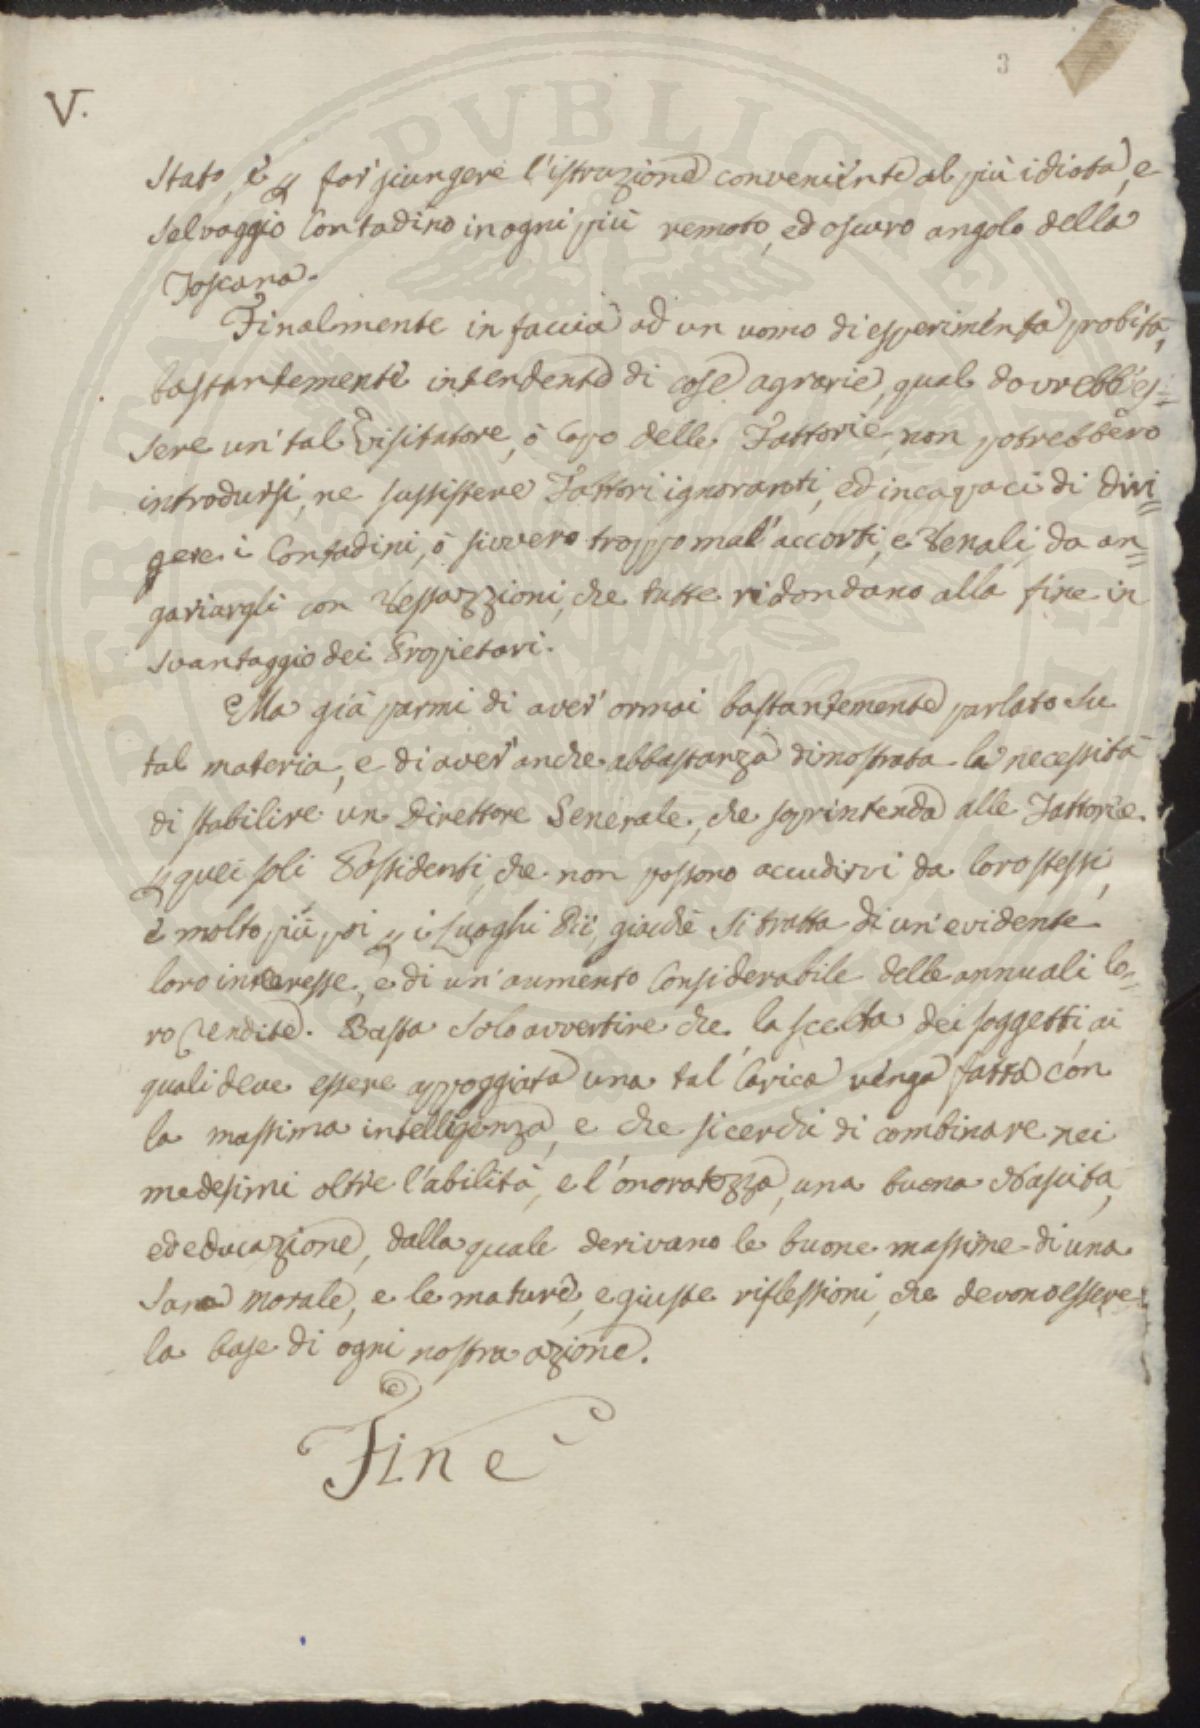 3
V.
Stato, e p far giungere l'istruzione conveniente al più idiota, e
selvaggio Contadino in ogni più remoto, ed oscuro angolo della
Toscana.
Finalmente in faccia ad un uomo di esperimentata probità,
bastantemente intendente di cose agrarie, qual dovrebb'es=
sere un tal Visitatore, ò Capo delle Fattorie, non potrebbero
introdursi, ne sussistere Fattori ignoranti, ed incapaci di diri=
gere i Contadini, ò sivvero troppo mal'accorti, e Venali, da an=
gariargli con Vessazzioni, che tutte ridondano alla fine in
svantaggio dei Proprietari.
Ma già parmi di aver ormai bastantemente parlato su
tal materia, e di aver anche abbastanza dimostrata la necessità
di stabilire un Direttore Generale, che soprintenda alle Fattorie.
p quei soli Possidenti, che non possono accudirvi da loro stessi,
è molto più poi p i Luoghi Pii, giachè si tratta di un'evidente
loro interesse, e di un'aumento Considerabile delle annuali lo=
ro Rendite. Basta solo avvertire che la scelta dei soggetti, ai
quali deve essere appoggiata una tal Carica venga fatta con
la massima intelligenza, e che si cerchi di combinare nei
medesimi oltre l'abilità, e l'onoratezza, una buona Nascita,
ed educazione, dalla quale derivano le buone massime di una
sana morale, e le mature, e giuste riflessioni, che devono essere
la base di ogni nostra azione.
Fine